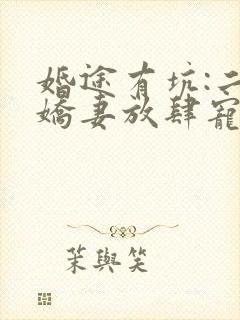 婚途有坑:二
嬌妻放肆寵
茉與笑